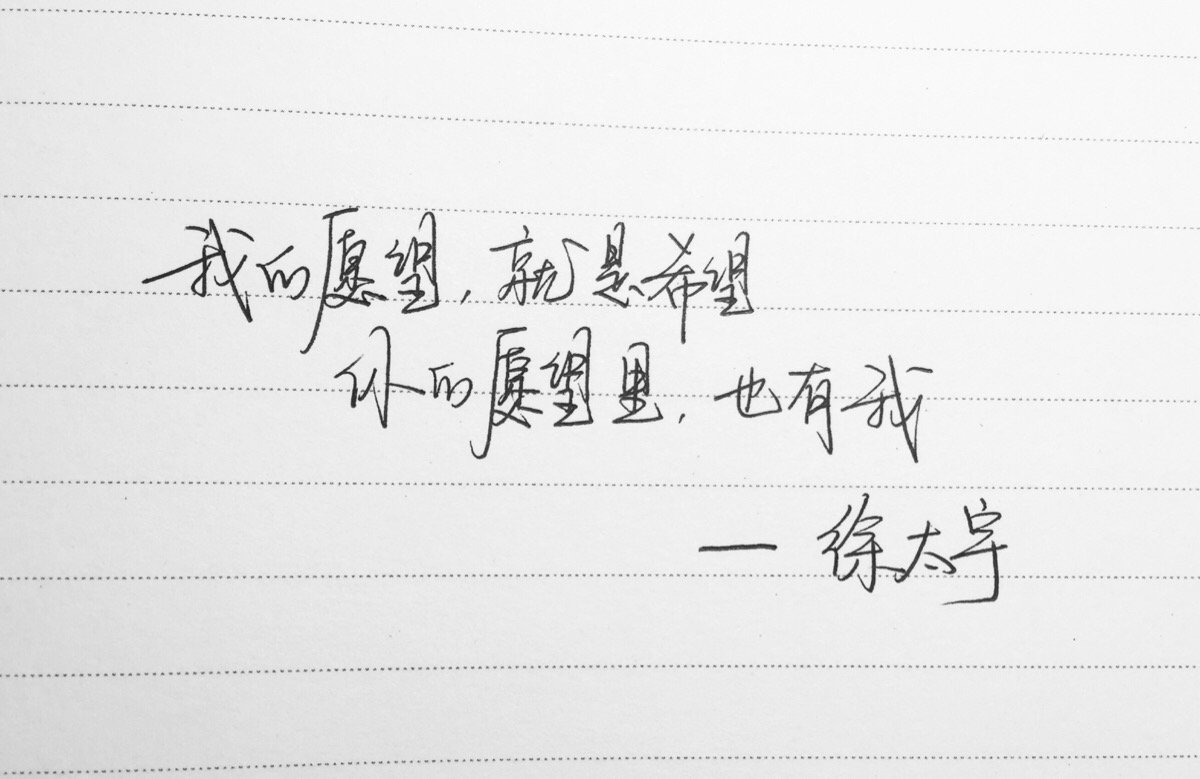 我的愿望,就是希望
你的愿望里,也有我
— 徐太宇